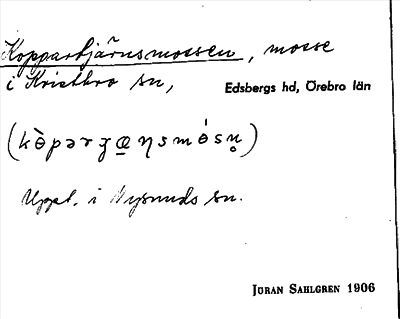 Kopparbjärnsmossen, mosse
i Kvistbro sn,
Edsbergs hd, Örebro län
Uppt. i Nysunds sn.
JÖRAN SAHLGREN 1906